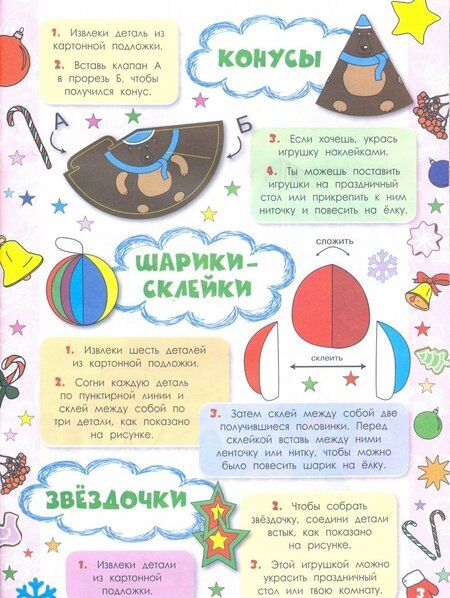 КОНУСЫ
1. Извлеки деталь из
картонной подложки.
2. Вставь клапан А
в прорезь Б, чтобы
получился конус.
А
Б
3. Если хочешь, укрась
игрушку наклейками.
4. Ты можешь поставить
игрушки на праздничный
стол или прикрепить к ним
ниточку и повесить на ёлку.
ШАРИКИ-
СКЛЕЙКИ
сложить
склеить
1. Извлеки шесть деталей
из картонной подложки.
2. Согни каждую деталь
по пунктирной линии и
склей между собой по
три детали, как показано
на рисунке.
3. Затем склей между собой две
получившиеся половинки. Перед
склейкой вставь между ними
ленточку или нитку, чтобы можно
было повесить шарик на ёлку.
ЗВЁЗДОЧКИ
1. Извлеки детали
из картонной
подложки.
2. Чтобы собрать
звёздочку, соедини детали
встык, как показано
на рисунке.
3. Этой игрушкой можно
украсить праздничный
стол или твою комнату.
3